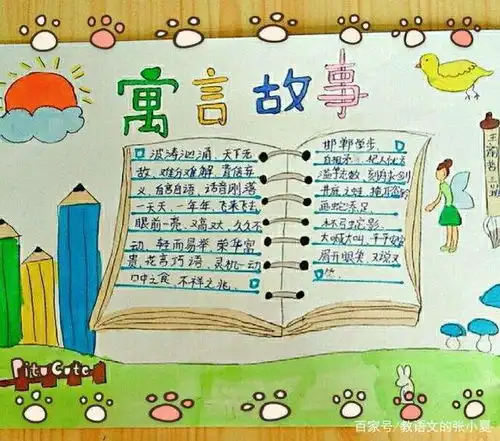 寓言故事
波涛汹涌 天下无
故 难分难解 背信弃
义 自言自语 话音刚落
一天天 一年年 飞来飞去
眼前一亮 又高又大 久久不
动 轻而易举 荣华富
贵 花言巧语 灵机一动
口中之食 不祥之兆
邯郸学步
自相矛 杞人忧天
滥竽充数 刻舟求剑
井底之蛙 掩耳盗铃
画蛇添足
杯弓蛇影
大喊大叫 平平安安
眉开眼笑 又说又
Pitu Cute
百家号/教语文的张小夏